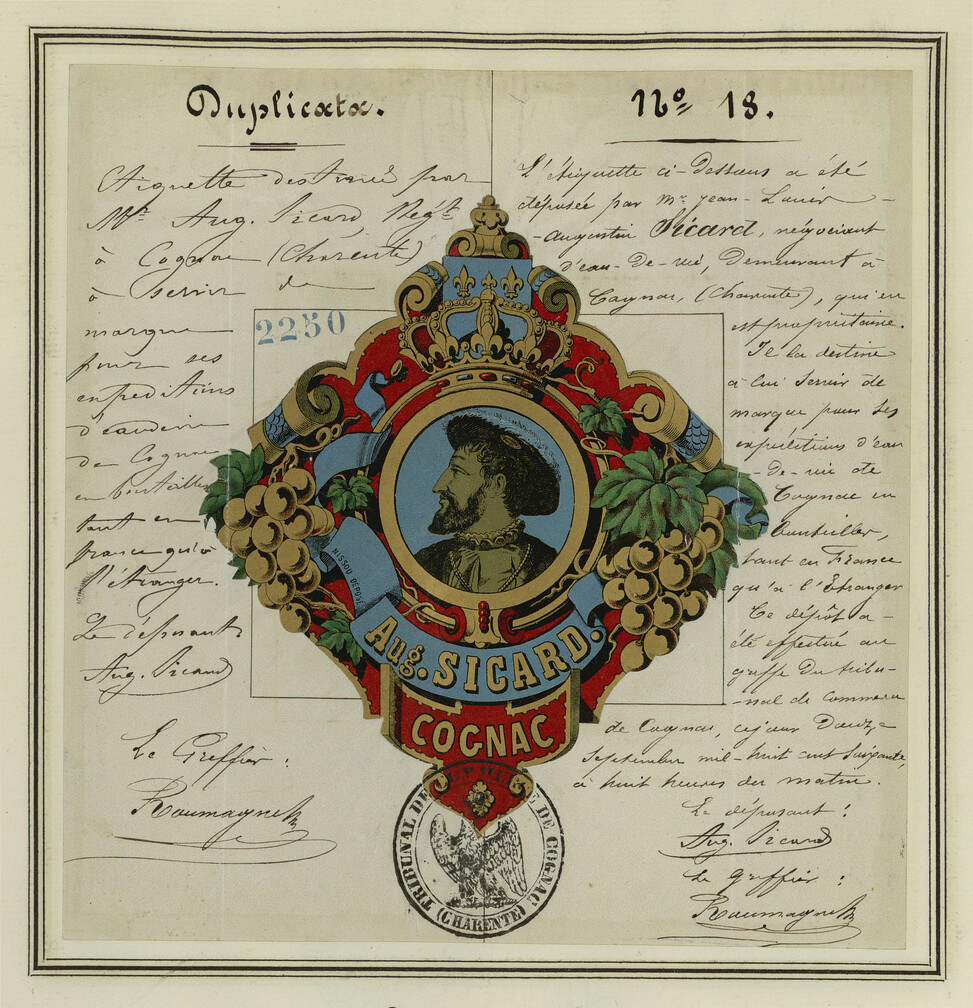 Duplicata.
Etiquette destinée par
Mr. Aug. Sicard Negt.
à Cognac (Charente)
à servir de
marque
pour ses
expeditions
d'eaudevie
de Cognac
en bouteilles
tant en
france qu'à
l'étranger.
Le déposant
Aug. Sicard
Le Greffier :
Roumagne
No 18.
L'étiquette ci-Dessous a été
déposée par Mr. Jean-Louis-
-Augustin Sicard, négociant
d'eau-de-vie, Demeurant à
Cognac, (Charente), qui en
est propriétaire.
Il la destine
à lui servir de
marque pour ses
expéditions d'eau
-de-vie de
Cognac en
Bouteilles,
tant en France
qu'à l'Etranger
Ce dépôt a-
été effectué au
greffe Du tribu-
-nal de commerce
de Cognac, cejour Douze
Septembre mil-huit cent Soixante
à huit heures du matin.
Le déposant :
Aug. Sicard
Le Greffier :
Roumagne
2250
NISSOU DÉPOSÉ
Aug. SICARD.
COGNAC
TRIBUNAL DE DE COGNAC
(CHARENTE)